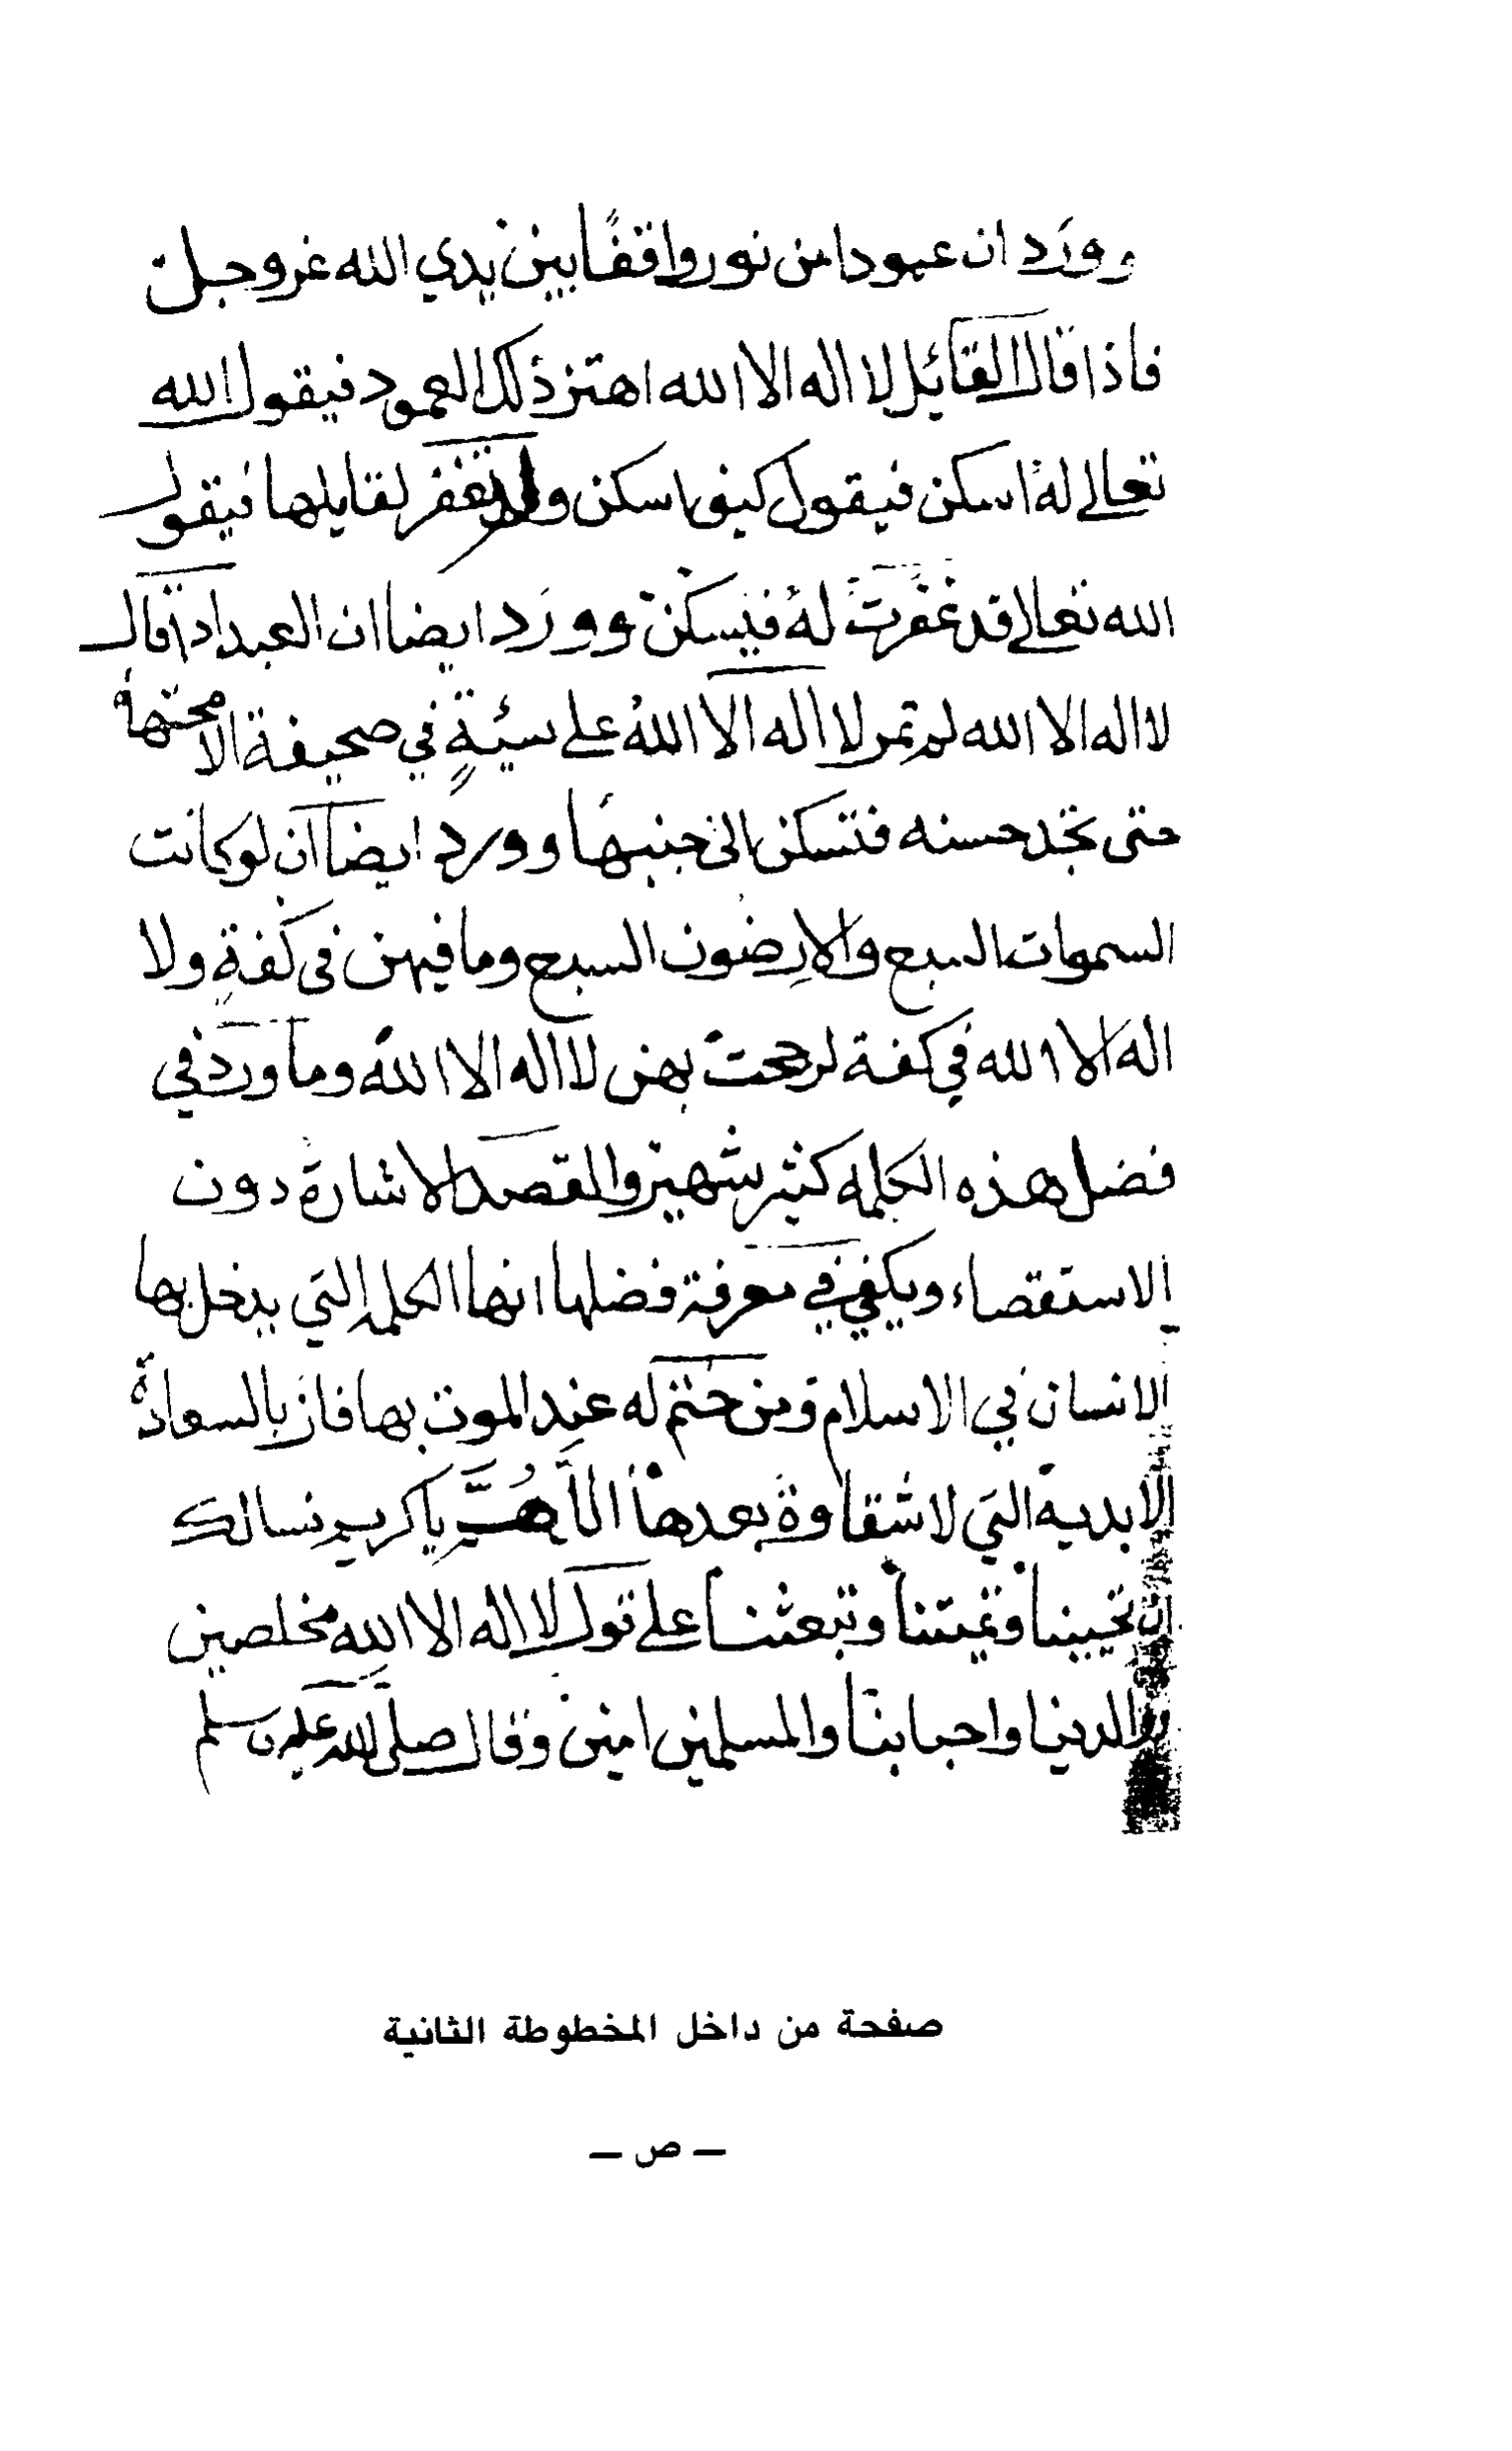 وورَد ان عمودا من نور واقفًا بين يدي الله عز وجل
فاذا قال القائل لا اله الا الله اهتز ذلك العمود فيقول الله
تعالى لهُ اسكن فيقول كيف اسكن ولم تغفر لقايلها فيقول
الله تعالى قد غفرت لهُ فيسكن وورَد ايضا ان العبد اذا قال
لا اله الا الله لم تمر لا اله الا اللهُ على سيئةٍ في صحيفة الا محتها
حتى تجد حسنه فتسكن الى جنبهَا وورد ايضا ان لو كانت
السموات السبع والارِضون السبع وما فيهن في كفةٍ ولا
اله الا الله في كفة لرجحت بهن لا اله الا اللهُ وما ورد في
فضل هذه الكلمه كثير شهير والقصد الاشارة دون
الاستقصاء ويكفي في معرفة فضلها انها الكلمه التي يدخل بها
الانسان في الاسلام ومن ختم له عند الموت بها فاز بالسعادة
الابدية التي لا شقاوة بعدها اللَّهُمَّ يا كريم نسالك
ان تحيينا وتميتنا وتبعثنا على قول لا اله الا الله مخلصين
ووالدينا واحبابنا والمسلمين امين وقال صلى الله عليه وسلم
صفحة من داخل المخطوطة الثانية
— ص —